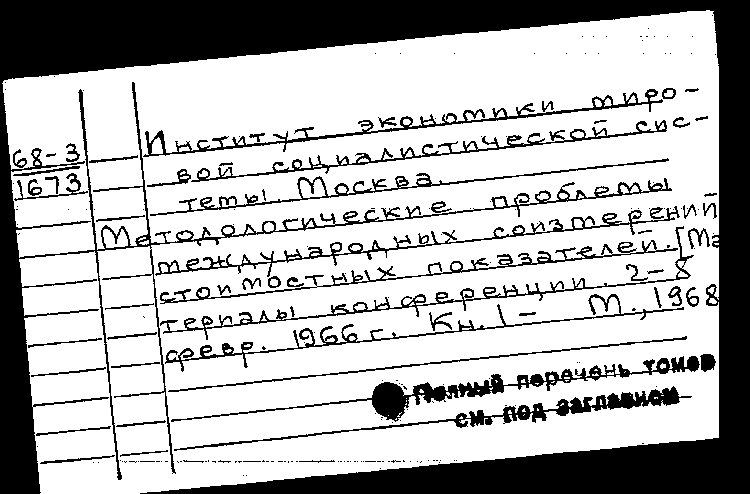 68-3
1673
Институт экономики миро-
вой социалистической сис-
темы. Москва.
Методологические проблемы
международных соизмерений
стоимостных показателей. [Ма
териалы конференции. 2-8
февр. 1966 г. Кн. 1- М., 1968
Полный перечень томов
см. под заглавием